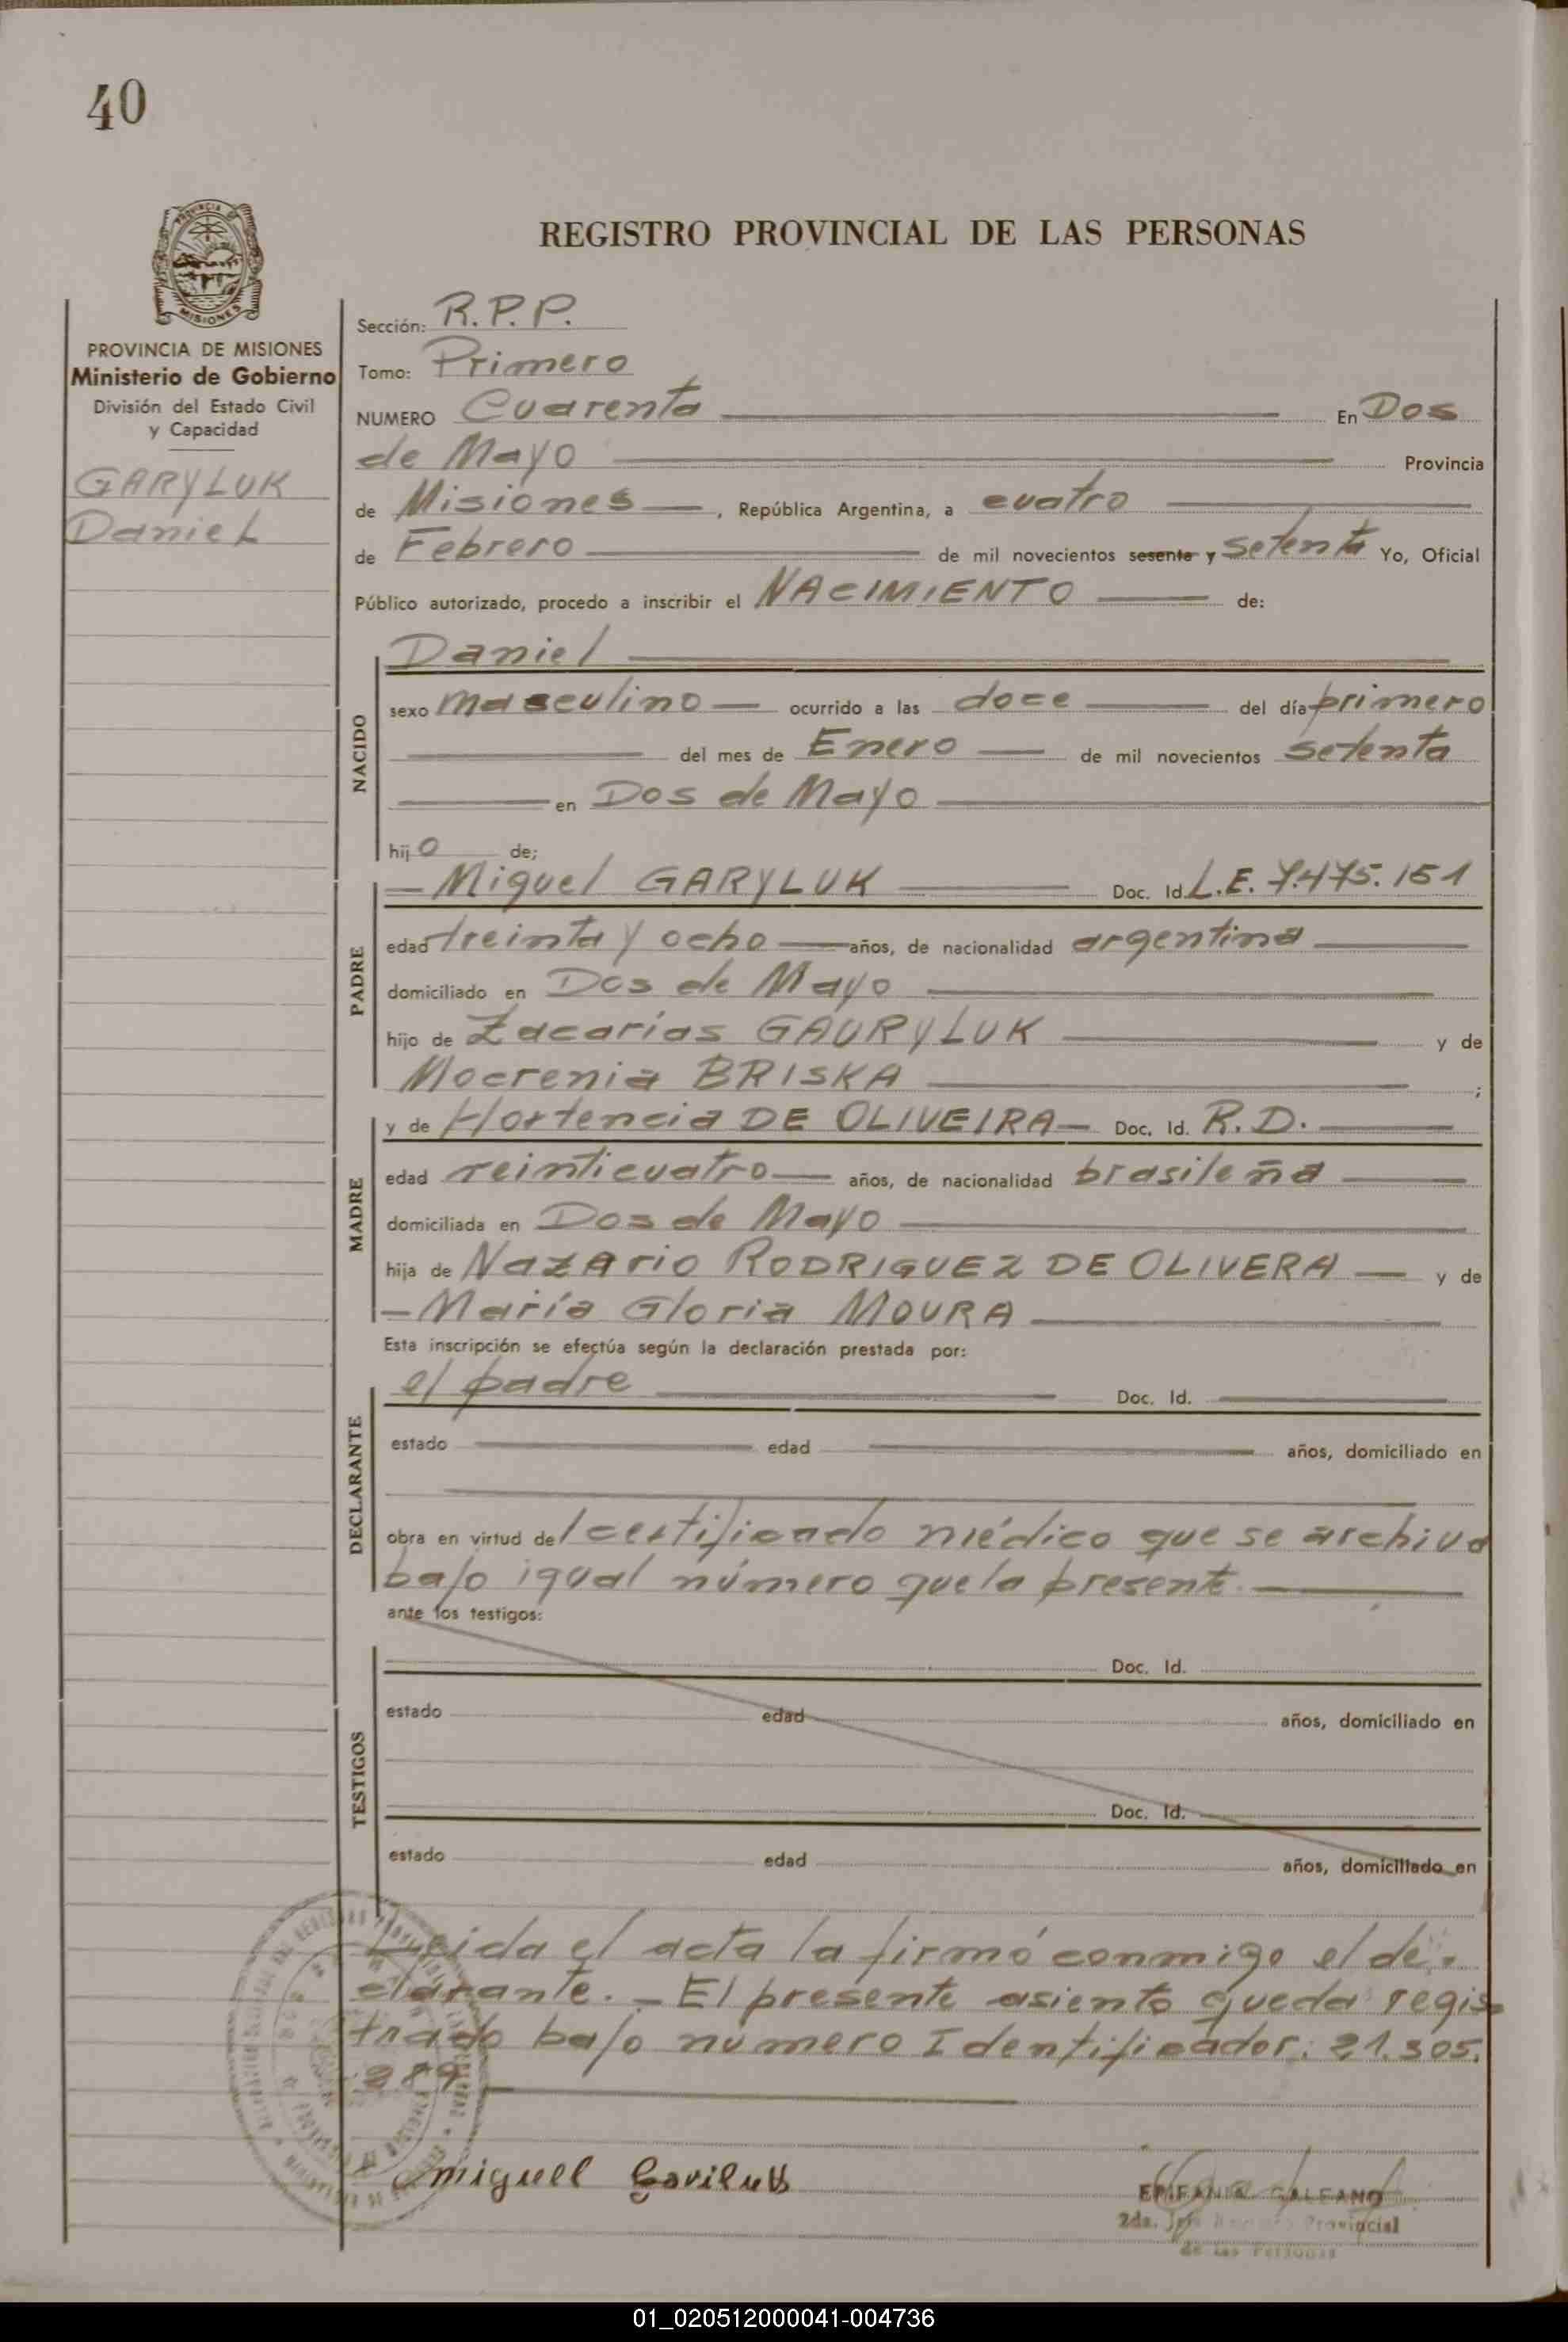 40
REGISTRO PROVINCIAL DE LAS PERSONAS
PROVINCIA DE MISIONES
Ministerio de Gobierno
División del Estado Civil
y Capacidad
GARYLUK
Daniel
Sección: R.P.P.
Tomo: Primero
NUMERO Cuarenta En Dos
de Mayo Provincia
de Misiones, República Argentina, a cuatro
de Febrero de mil novecientos sesenta y setenta Yo, Oficial
Público autorizado, procedo a inscribir el NACIMIENTO de:
NACIDO
Daniel
sexo masculino ocurrido a las doce del día primero
del mes de Enero de mil novecientos setenta
en Dos de Mayo
hijo de;
PADRE
Miguel GARYLUK Doc. Id. L.E. 7.475.151
edad treinta y ocho años, de nacionalidad argentina
domiciliado en Dos de Mayo
hijo de Zacarías GAURYLUK y de
Mocrenia BRISKA ;
MADRE
y de Hortencia DE OLIVEIRA Doc. Id. R.D.
edad reinticuatro años, de nacionalidad brasileña
domiciliada en Dos de Mayo
hija de Nazario RODRIGUEZ DE OLIVERA y de
María Gloria MOURA
Esta inscripción se efectúa según la declaración prestada por:
DECLARANTE
el padre Doc. Id.
estado edad años, domiciliado en
obra en virtud del certificado médico que se archiva
bajo igual número que la presente.
ante los testigos:
TESTIGOS
Doc. Id.
estado edad años, domiciliado en
Doc. Id.
estado edad años, domiciliado en
Leida el acta la firmó conmigo el de-
clarante. - El presente asiento queda regis-
trado bajo número Identificador: 21.305.
289
miguell Gariluk
EPIFANIA GALEANO
2da. Jefe Registro Provincial
de las Personas
01_020512000041-004736